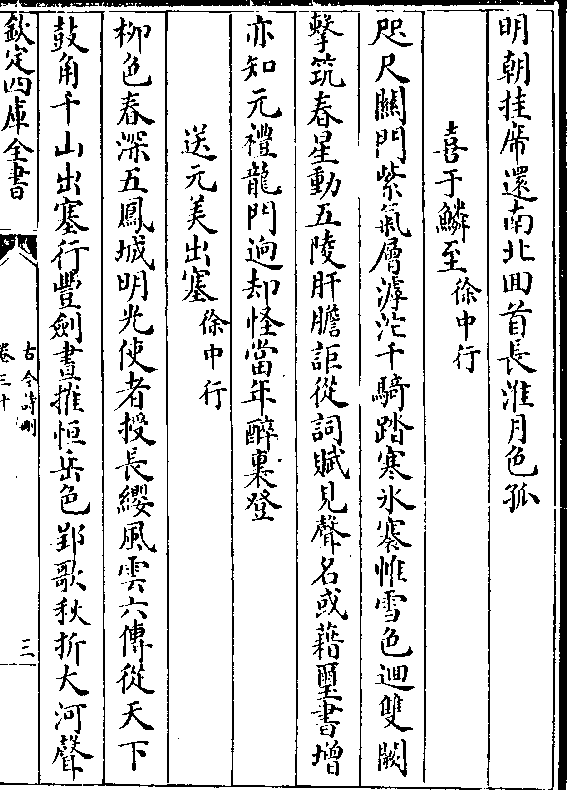 明朝挂席還南北回首長淮月色孤
喜于鱗至徐中行
咫尺關門紫氣層滹沱千騎踏寒氷褰帷雪色迴雙闕
擊筑春星動五陵肝膽詎從詞賦見聲名或藉璽書增
亦知元禮龍門迥却怪當年醉裏登
送元美出塞徐中行
柳色春深五鳳城明光使者授長纓風雲六傳從天下
鼓角千山出塞行豐劍晝摧恒岳色郢歌秋折大河聲
欽定四庫全書
古今詩刪
卷三十
三